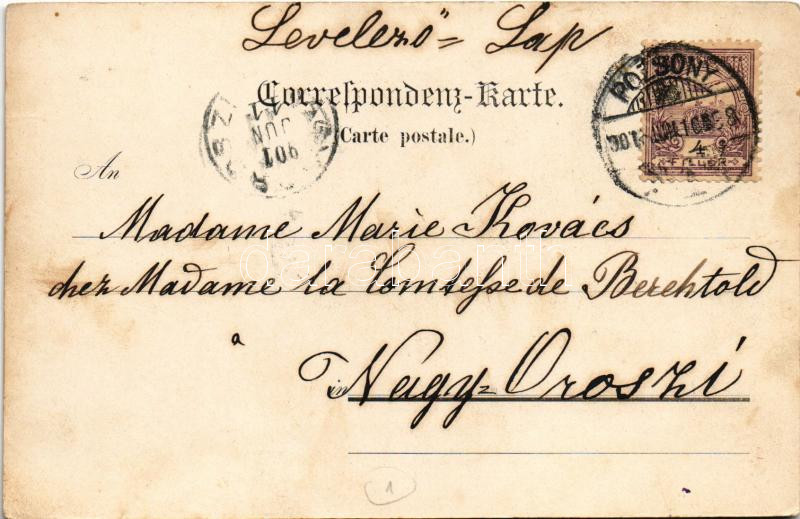 Levelező = Lap
Correspondenz-Karte.
(Carte postale.)
POZSONY
4
FILLÉR
JUN
901
An
Madame Marie Kovács
chez Madame la Comtesse de Berchtold
à
in Nagy-Oroszi
1
darabanth